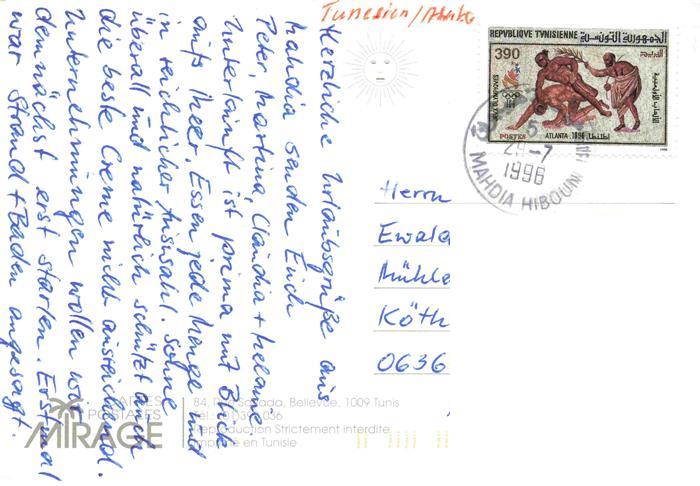 Tunesien/Afrika
Herzliche Urlaubsgrüße aus
Mahdia senden Euch
Peter, Martina, Claudia + Melanie.
Unterkunft ist prima mit Blick
aufs Meer, Essen jede Menge und
in reichlicher Auswahl. Sonne
überall und natürlich schützt auch
die beste Creme nicht ausreichend.
Unternehmungen wollen wir
demnächst erst starten. Erstmal
war Strand + Baden angesagt.
REPVBLIQUE TVNISIENNE الجمهورية التونسية
390
POSTES
ATLANTA 1996
29-7
1996
MAHDIA HIBOUN
Herrn
Ewald
Mühle
Köth
0636
CARTES
POSTALES
MIRAGE
84, Saada, Bellevue, 1009 Tunis
Tel
Reproduction Strictement interdite
Imprimé en Tunisie